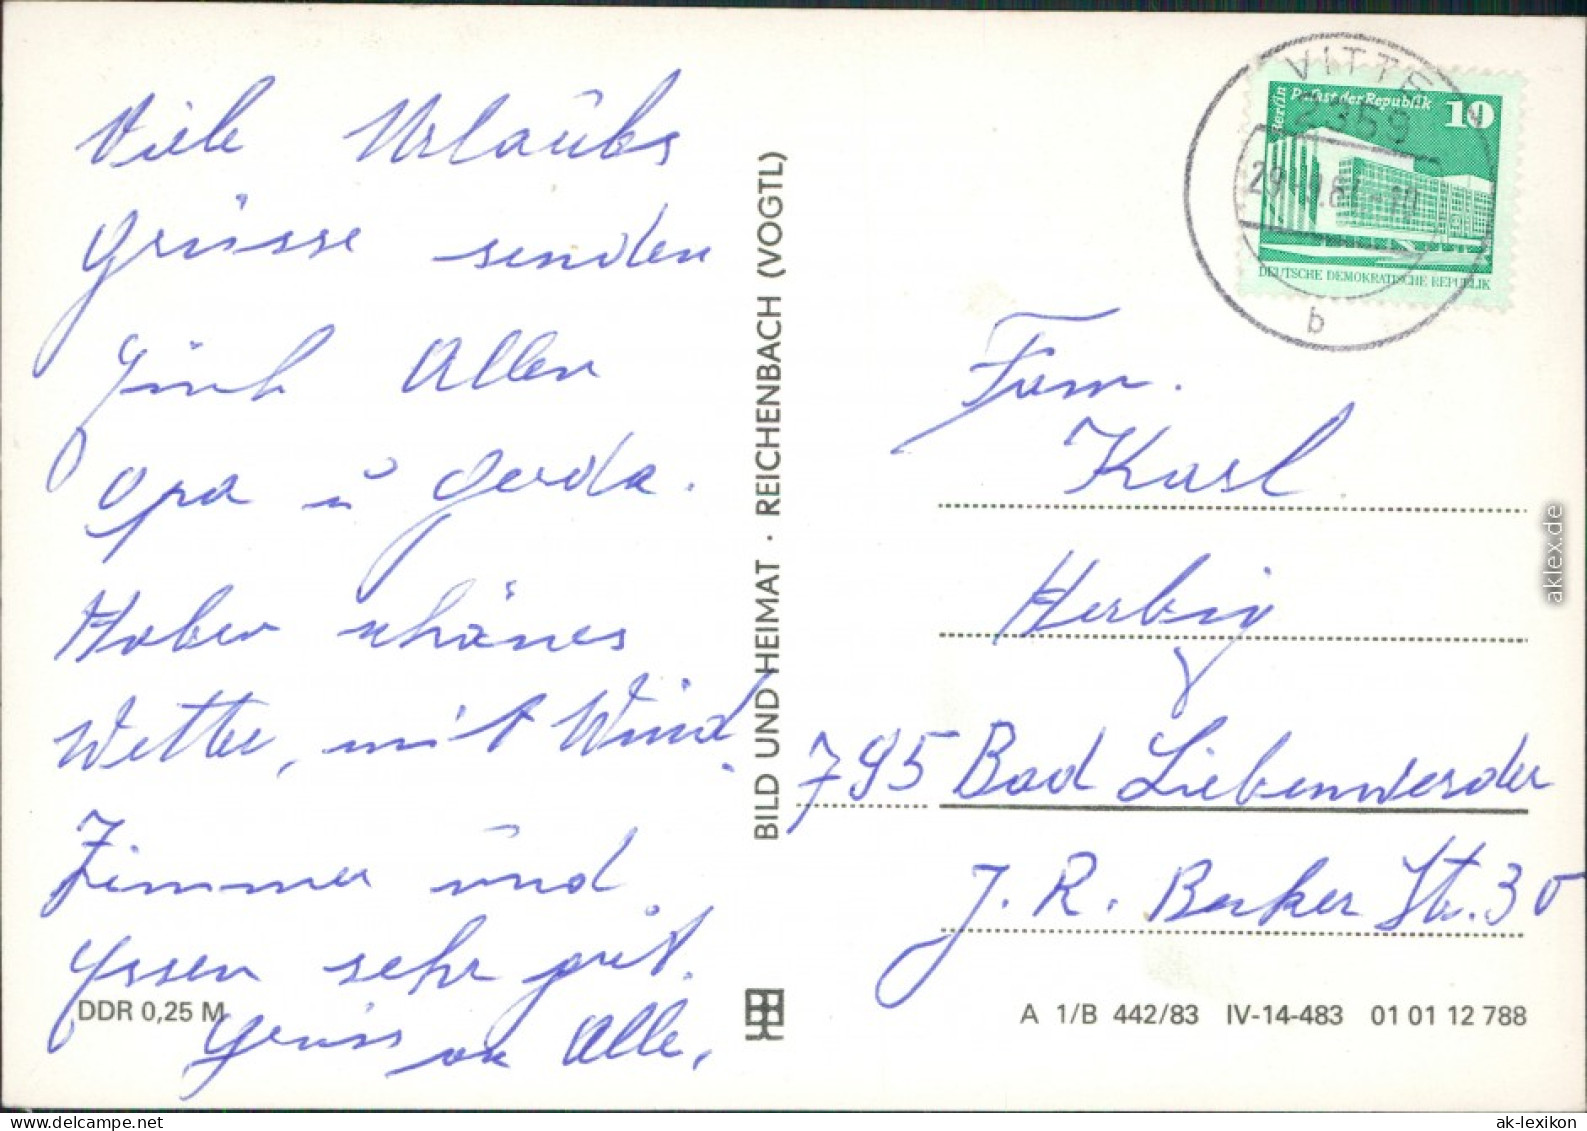 Viele Urlaubs
Grüsse senden
Euch Allen
Opa u Gerda.
Haben schönes
Wetter, mit Wind.
Zimmer und
Essen sehr gut.
Gruss an Alle.
DDR 0,25 M
BILD UND HEIMAT · REICHENBACH (VOGTL)
VITTE
2359
b
Berlin Palast der Republik 10
DEUTSCHE DEMOKRATISCHE REPUBLIK
Fam.
Karl
Herbig
795 Bad Liebenwerder
J. R. Becker Str. 30
A 1/B 442/83 IV-14-483 01 01 12 788
aklex.de
ak-lexikon